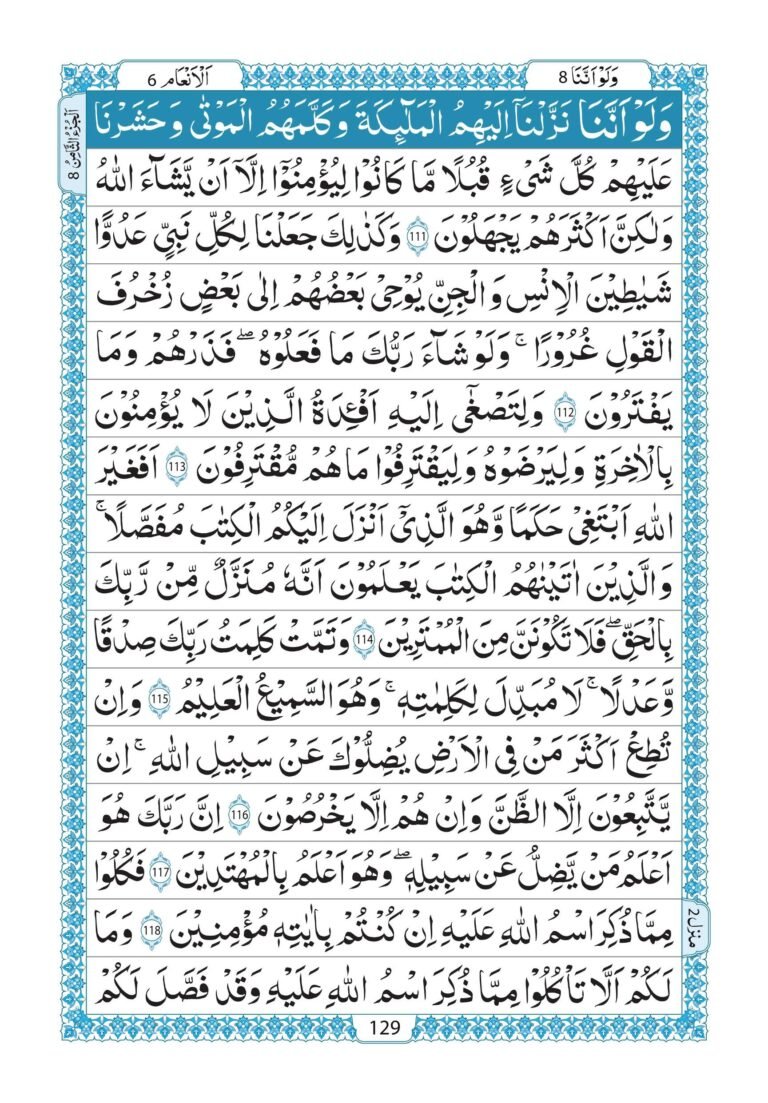 وَلَوْ اَنَّنَا 8
اَلْاَنْعَام 6
اَلْجُزْءُ الثَّامِنُ 8
وَلَوْ اَنَّنَا نَزَّلْنَاۤ اِلَيْهِمُ الْمَلٰٓئِكَةَ وَكَلَّمَهُمُ الْمَوْتٰى وَحَشَرْنَا
عَلَيْهِمْ كُلَّ شَيْءٍ قُبُلًا مَّا كَانُوْا لِيُؤْمِنُوْۤا اِلَّاۤ اَنْ يَّشَآءَ اللّٰهُ
وَلٰكِنَّ اَكْثَرَهُمْ يَجْهَلُوْنَ 111 وَكَذٰلِكَ جَعَلْنَا لِكُلِّ نَبِيٍّ عَدُوًّا
شَيٰطِيْنَ الْاِنْسِ وَالْجِنِّ يُوْحِيْ بَعْضُهُمْ اِلٰى بَعْضٍ زُخْرُفَ
الْقَوْلِ غُرُوْرًا ۚ وَلَوْ شَآءَ رَبُّكَ مَا فَعَلُوْهُ ۖ فَذَرْهُمْ وَمَا
يَفْتَرُوْنَ 112 وَلِتَصْغٰٓى اِلَيْهِ اَفْـِٕدَةُ الَّذِيْنَ لَا يُؤْمِنُوْنَ
بِالْاٰخِرَةِ وَلِيَرْضَوْهُ وَلِيَقْتَرِفُوْا مَا هُمْ مُّقْتَرِفُوْنَ 113 اَفَغَيْرَ
اللّٰهِ اَبْتَغِيْ حَكَمًا وَّهُوَ الَّذِيْۤ اَنْزَلَ اِلَيْكُمُ الْكِتٰبَ مُفَصَّلًا ۚ
وَالَّذِيْنَ اٰتَيْنٰهُمُ الْكِتٰبَ يَعْلَمُوْنَ اَنَّهٗ مُنَزَّلٌ مِّنْ رَّبِّكَ
بِالْحَقِّ ۖ فَلَا تَكُوْنَنَّ مِنَ الْمُمْتَرِيْنَ 114 وَتَمَّتْ كَلِمَتُ رَبِّكَ صِدْقًا
وَّعَدْلًا ۚ لَا مُبَدِّلَ لِكَلِمٰتِهٖ ۚ وَهُوَ السَّمِيْعُ الْعَلِيْمُ 115 وَاِنْ
تُطِعْ اَكْثَرَ مَنْ فِي الْاَرْضِ يُضِلُّوْكَ عَنْ سَبِيْلِ اللّٰهِ ۚ اِنْ
يَّتَّبِعُوْنَ اِلَّا الظَّنَّ وَاِنْ هُمْ اِلَّا يَخْرُصُوْنَ 116 اِنَّ رَبَّكَ هُوَ
اَعْلَمُ مَنْ يَّضِلُّ عَنْ سَبِيْلِهٖ ۖ وَهُوَ اَعْلَمُ بِالْمُهْتَدِيْنَ 117 فَكُلُوْا
مِمَّا ذُكِرَ اسْمُ اللّٰهِ عَلَيْهِ اِنْ كُنْتُمْ بِاٰيٰتِهٖ مُؤْمِنِيْنَ 118 وَمَا
لَكُمْ اَلَّا تَاْكُلُوْا مِمَّا ذُكِرَ اسْمُ اللّٰهِ عَلَيْهِ وَقَدْ فَصَّلَ لَكُمْ
منزل 2
129